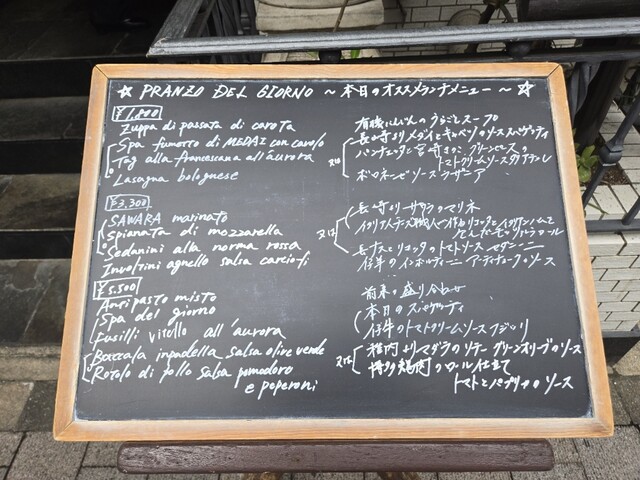 ☆ PRANZO DEL GIORNO ～本日のオススメランチメニュー～☆
¥1,800
Zuppa di passata di carota
有機にんじんのうらごしスープ
Spa fumetto di MEDAI con cavolo
長崎よりメダイとキャベツのソース スパゲッティ
Tag alla francescana all'aurora
又は
パンチェッタと宮崎きのこ グリーンピースの
トマトクリームソース タリアテッレ
Lasagna bolognese
ボロネーゼソース ラザニア
¥3,300
SAWARA marinato
長崎よりサワラのマリネ
Spianata di mozzarella
又は
イタリア人チーズ職人
Sedanini alla norma rossa
長ナスとリコッタのトマトソース セダニーニ
Involtini agnello salsa carciofi
仔羊のインボルティーニ アーティチョークのソース
¥5,500
Antipasto misto
前菜の盛り合わせ
Spa del giorno
本日のスパゲッティ
Fusilli vitello all'aurora
仔牛のトマトクリームソース フジッリ
Baccala inpadella salsa olive verde
又は
稚内よりマダラのソテー グリーンオリーブのソース
Rotolo di pollo salsa pomodoro
e peperoni
博多鶏肉のロール仕立て
トマトとパプリカのソース